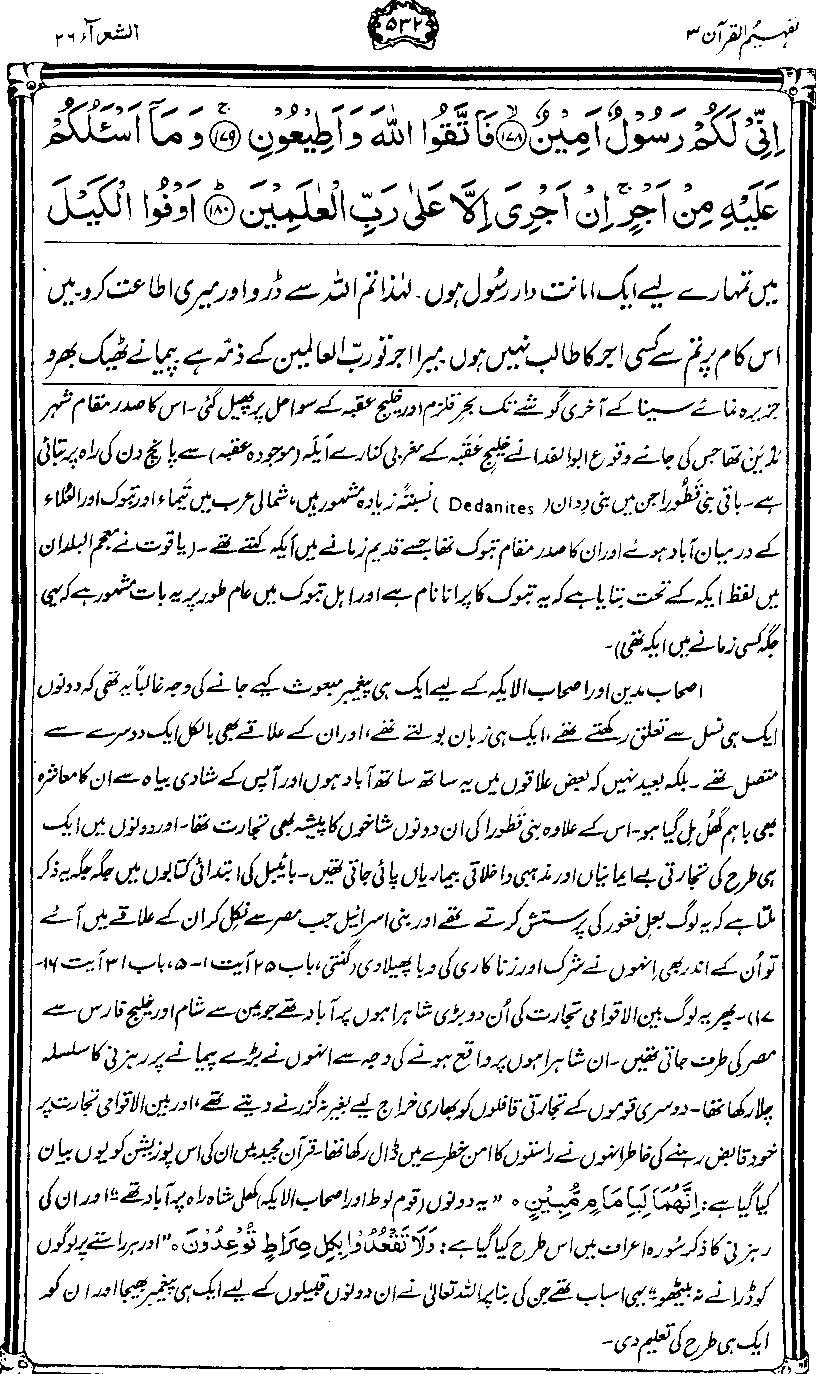 تفہیم القرآن ۳
۵۳۲
الشعرآء ۲۶
اِنِّیْ لَكُمْ رَسُوْلٌ اَمِیْنٌ ۙ﴿۱۷۸﴾ فَاتَّقُوا اللّٰهَ وَاَطِیْعُوْنِ ۚ﴿۱۷۹﴾ وَمَاۤ اَسْـَٔلُكُمْ
عَلَیْهِ مِنْ اَجْرٍ ۚ اِنْ اَجْرِیَ اِلَّا عَلٰی رَبِّ الْعٰلَمِیْنَ ؕ﴿۱۸۰﴾ اَوْفُوا الْكَیْلَ
میں تمہارے لیے ایک امانت دار رسُول ہوں۔ لہٰذا تم اللہ سے ڈرو اور میری اطاعت کرو۔ میں
اس کام پر تم سے کسی اجر کا طالب نہیں ہوں۔ میرا اجر تو ربّ العالمین کے ذمّہ ہے۔ پیمانے ٹھیک بھرو
جزیرہ نمائے سینا کے آخری گوشے تک بحرِ قلزم اور خلیج عقبہ کے سواحل پر پھیل گئی۔ اس کا صدر مقام شہر
مَدْیَن تھا جس کی جائے وقوع ابوالفدا نے خلیج عَقَبہ کے مغربی کنارے اَیلَہ (موجودہ عقبہ) سے پانچ دن کی راہ پر بتائی
ہے۔ باقی بنی قَطُورا جن میں بنی دِدان (Dedanites) نسبتًہ زیادہ مشہور ہیں، شمالی عرب میں تَیماء اور تبوک اور العُلاء
کے درمیان آباد ہوئے اور ان کا صدر مقام تبوک تھا جسے قدیم زمانے میں اَیکہ کہتے تھے۔ (یاقوت نے معجم البلدان
میں لفظ ایکہ کے تحت بتایا ہے کہ یہ تبوک کا پرانا نام ہے اور اہلِ تبوک میں عام طور پر یہ بات مشہور ہے کہ یہی
جگہ کسی زمانے میں ایکہ تھی)۔
اصحاب مدین اور اصحاب الایکہ کے لیے ایک ہی پیغمبر مبعوث کیے جانے کی وجہ غالباً یہ تھی کہ دونوں
ایک ہی نسل سے تعلق رکھتے تھے، ایک ہی زبان بولتے تھے، اور ان کے علاقے بھی بالکل ایک دوسرے سے
متصل تھے۔ بلکہ بعید نہیں کہ بعض علاقوں میں یہ ساتھ ساتھ آباد ہوں اور آپس کے شادی بیاہ سے ان کا معاشرہ
بھی باہم گھُل مِل گیا ہو۔ اس کے علاوہ بنی قَطُورا کی ان دونوں شاخوں کا پیشہ بھی تجارت تھا۔ اور دونوں میں ایک
ہی طرح کی تجارتی بے ایمانیاں اور مذہبی و اخلاقی بیماریاں پائی جاتی تھیں۔ بائیبل کی ابتدائی کتابوں میں جگہ جگہ یہ ذکر
ملتا ہے کہ یہ لوگ بعلِ فغور کی پرستش کرتے تھے اور بنی اسرائیل جب مصر سے نکل کر ان کے علاقے میں آئے
تو اُن کے اندر بھی انہوں نے شرک اور زناکاری کی وبا پھیلا دی (گنتی، باب ۲۵ آیت ۱-۵، باب ۳۱ آیت ۱۶-
۱۷)۔ پھر یہ لوگ بین الاقوامی تجارت کی اُن دو بڑی شاہراہوں پر آباد تھے جو یمن سے شام اور خلیج فارس سے
مصر کی طرف جاتی تھیں۔ ان شاہراہوں پر واقع ہونے کی وجہ سے انہوں نے بڑے پیمانے پر رہزنی کا سلسلہ
چلا رکھا تھا۔ دوسری قوموں کے تجارتی قافلوں کو بھاری خراج لیے بغیر نہ گزرنے دیتے تھے، اور بین الاقوامی تجارت پر
خود قابض رہنے کی خاطر انہوں نے راستوں کا امن خطرے میں ڈال رکھا تھا۔ قرآن مجید میں ان کی اس پوزیشن کو یوں بیان
کیا گیا ہے: اِنَّهُمَا لَبِاِمَامٍ مُّبِیْنٍ ۝ "یہ دونوں (قوم لوط اور اصحاب الایکہ) کھلی شاہ راہ پر آباد تھے" اور ان کی
رہزنی کا ذکر سُورہ اعراف میں اس طرح کیا گیا ہے: وَلَا تَقْعُدُوْا بِكُلِّ صِرَاطٍ تُوْعِدُوْنَ ۝ "اور ہر راستے پر لوگوں
کو ڈرانے نہ بیٹھو"۔ یہی اسباب تھے جن کی بنا پر اللہ تعالیٰ نے ان دونوں قبیلوں کے لیے ایک ہی پیغمبر بھیجا اور ان کو
ایک ہی طرح کی تعلیم دی۔